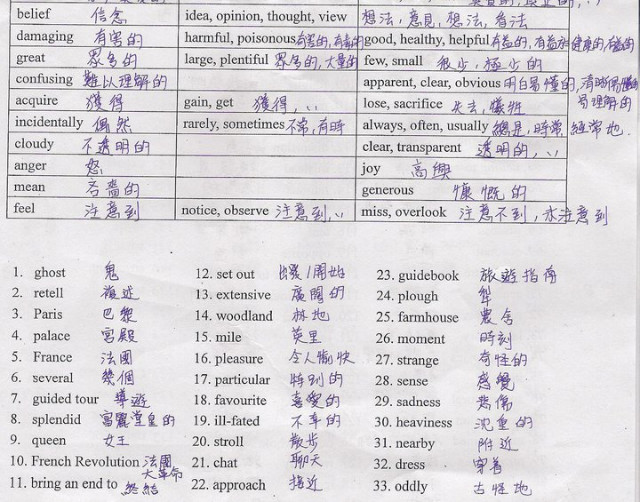 belief 信念 idea, opinion, thought, view 想法,意見,想法,看法
damaging 有害的 harmful, poisonous 有害的,有毒的 good, healthy, helpful 有益的,有益於健康的,有益的
great 眾多的 large, plentiful 眾多的,大量的 few, small 很少,極少的
confusing 難以理解的 apparent, clear, obvious 明白易懂的,清晰易懂的
易理解的
acquire 獲得 gain, get 獲得,〃 lose, sacrifice 失去,犧牲
incidentally 偶然 rarely, sometimes 不常,有時 always, often, usually 總是,時常,經常地.
cloudy 不透明的 clear, transparent 透明的,〃
anger 怒 joy 高興
mean 吝嗇的 generous 慷慨的
feel 注意到 notice, observe 注意到,〃 miss, overlook 注意不到,未注意到
1. ghost 鬼 12. set out 出發/開始 23. guidebook 旅遊指南
2. retell 複述 13. extensive 廣闊的 24. plough 犁
3. Paris 巴黎 14. woodland 林地 25. farmhouse 農舍
4. palace 宮殿 15. mile 英里 26. moment 時刻
5. France 法國 16. pleasure 令人愉快 27. strange 奇怪的
6. several 幾個 17. particular 特別的 28. sense 感覺
7. guided tour 導遊 18. favourite 喜愛的 29. sadness 悲傷
8. splendid 富麗堂皇的 19. ill-fated 不幸的 30. heaviness 沈重的
9. queen 女王 20. stroll 散步 31. nearby 附近
10. French Revolution 法國大革命 21. chat 聊天 32. dress 穿着
11. bring an end to 終結 22. approach 接近 33. oddly 古怪地